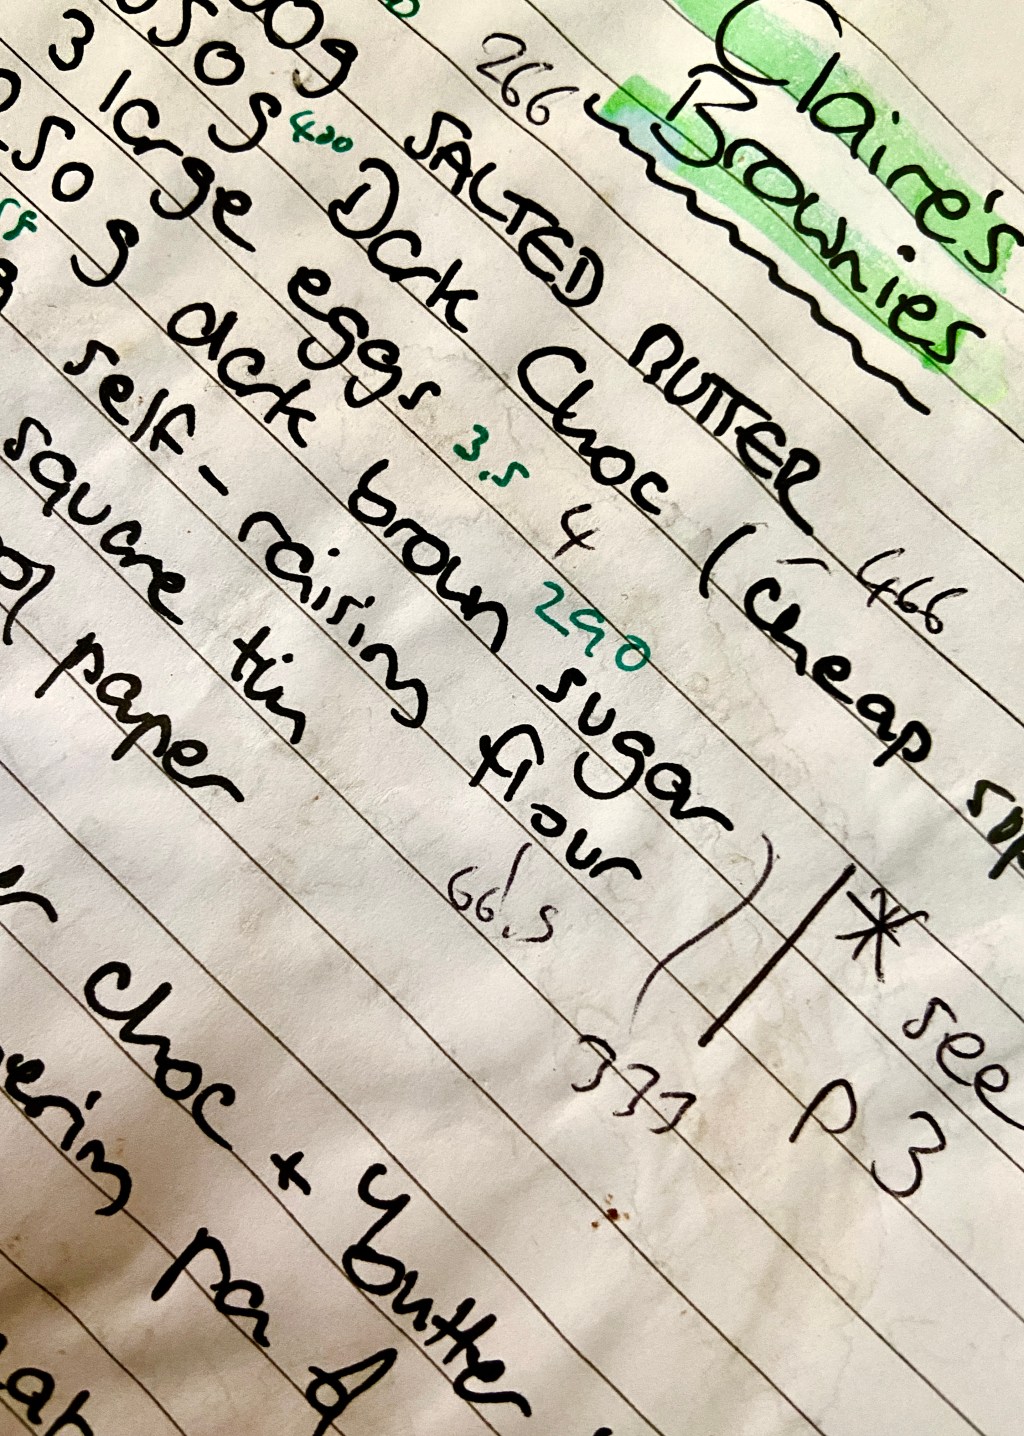 Claire's
Brownies
00g SALTED BUTTER 266
350g 400 Dark Choc (cheap 466
3 large eggs 3.5 4
250g dark brown sugar 290
self-raising flour 66.5
square tin 333
paper
* see
p 3
choc + butter
pan